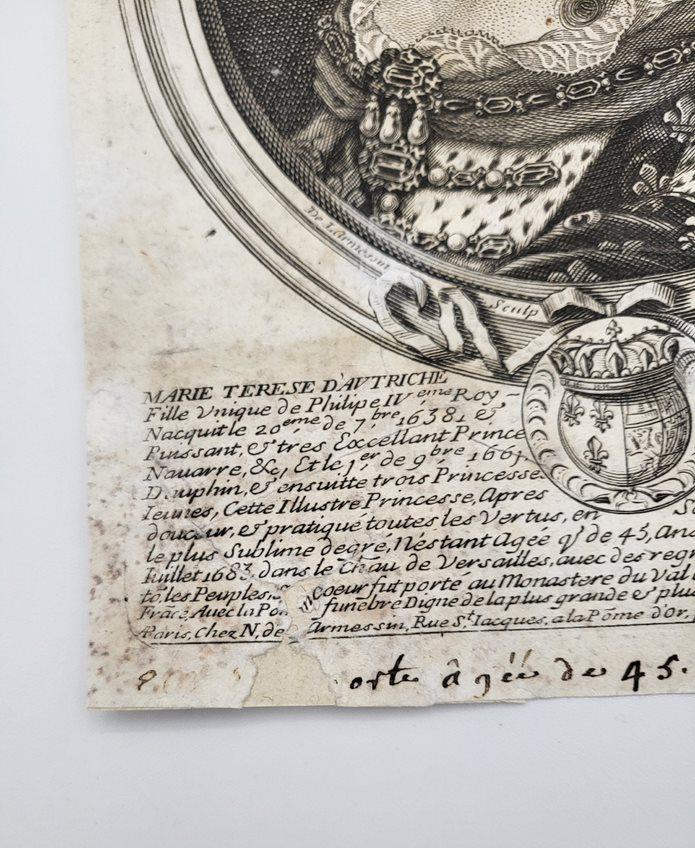 De Larmessin
Sculp
MARIE TERESE D'AVTRICHE
Fille Vnique de Philipe IV eme Roy
Nacquit le 20 eme de 7 bre 1638, &
Puissant, & tres Excellant Prince
Nauarre, &c, Et le 1 er de 9 bre 1661,
Dauphin, & ensuitte trois Princesse
Ieunes, Cette Illustre Princesse, Apres
douceur, & pratique toutes les Vertus, en
le plus Sublime degré, N'estant Agée q' de 45, An
Iuillet 1683, dans le Chau de Versailles, auec des regr
to, les Peuples, coeur fut porte au Monastere du Val
Frãce, Auec la Po funebre Digne de la plus grande & plu
Paris, Chez N, de armessin, Rue St. Iacques, a la Põme d'Or,
orte âgée de 45.